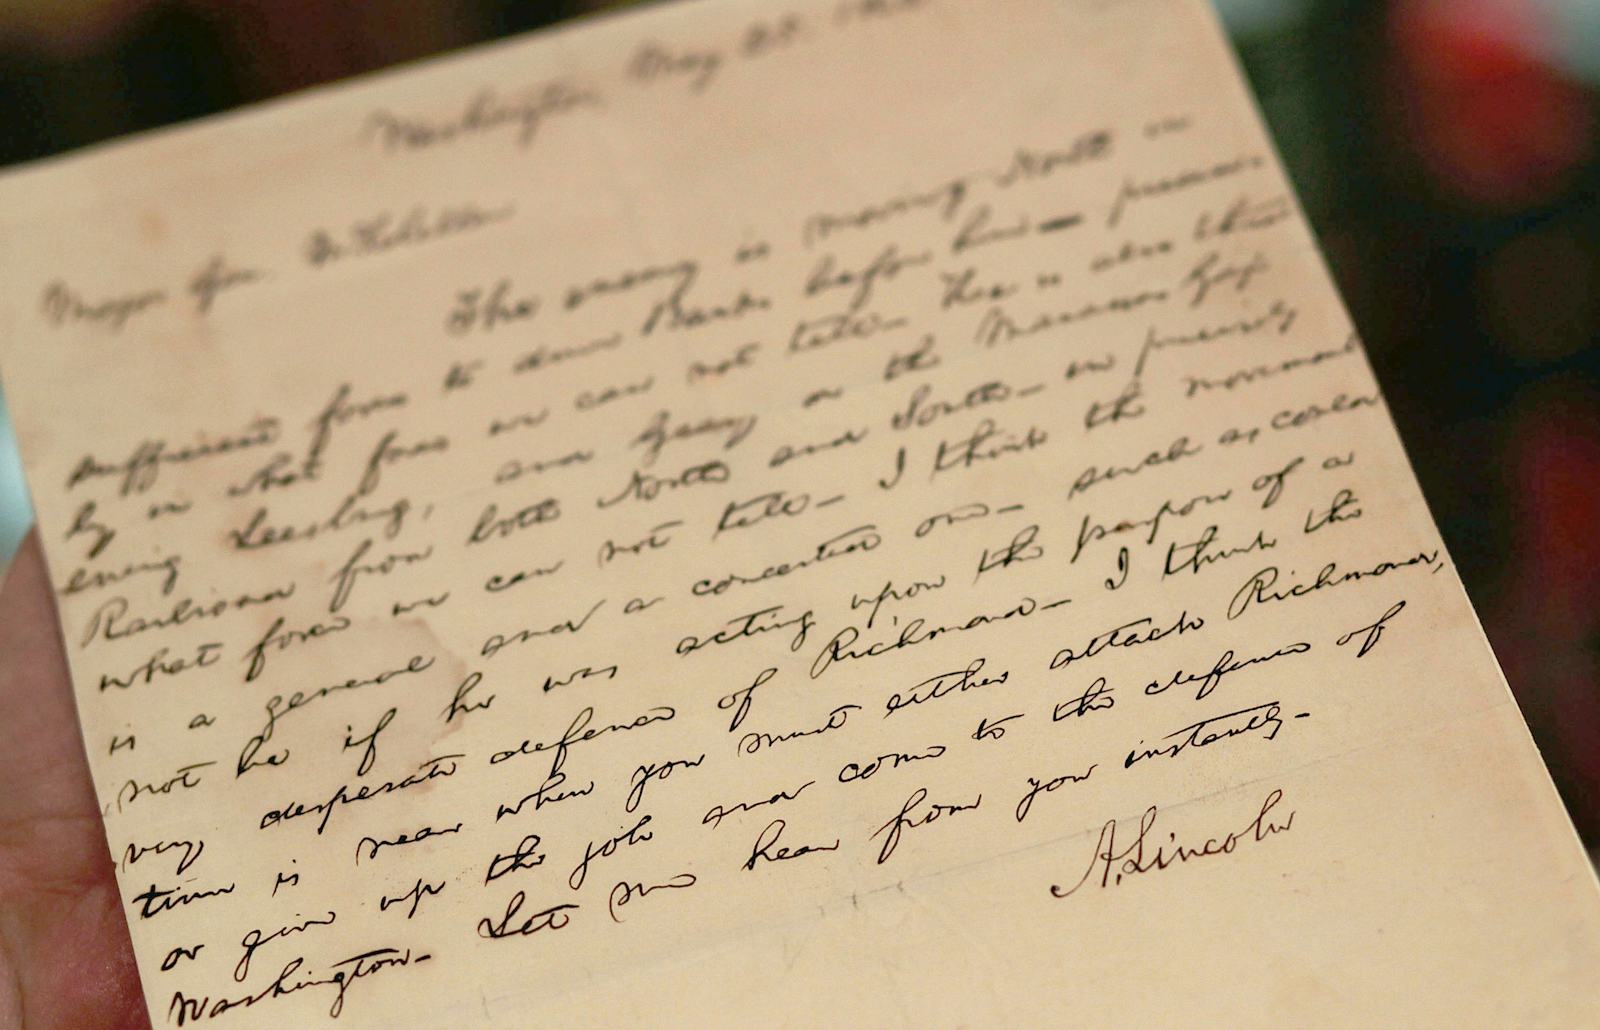 Washington, May 25. 1862
Major Gen. McClellan
The enemy is moving North in
sufficient force to drive Banks before him— precise-
ly in what force we can not tell— He is also threat
ening Leesburg, and Geary on the Manassas Gap
Railroad from both North and South— in precisely
what force we can not tell— I think the movement
is a general and a concerted one— such as could
not be if he was acting upon the purpose of a
very desperate defence of Richmond— I think the
time is near when you must either attack Richmond,
or give up the job and come to the defence of
Washington— Let me hear from you instantly—
A. Lincoln